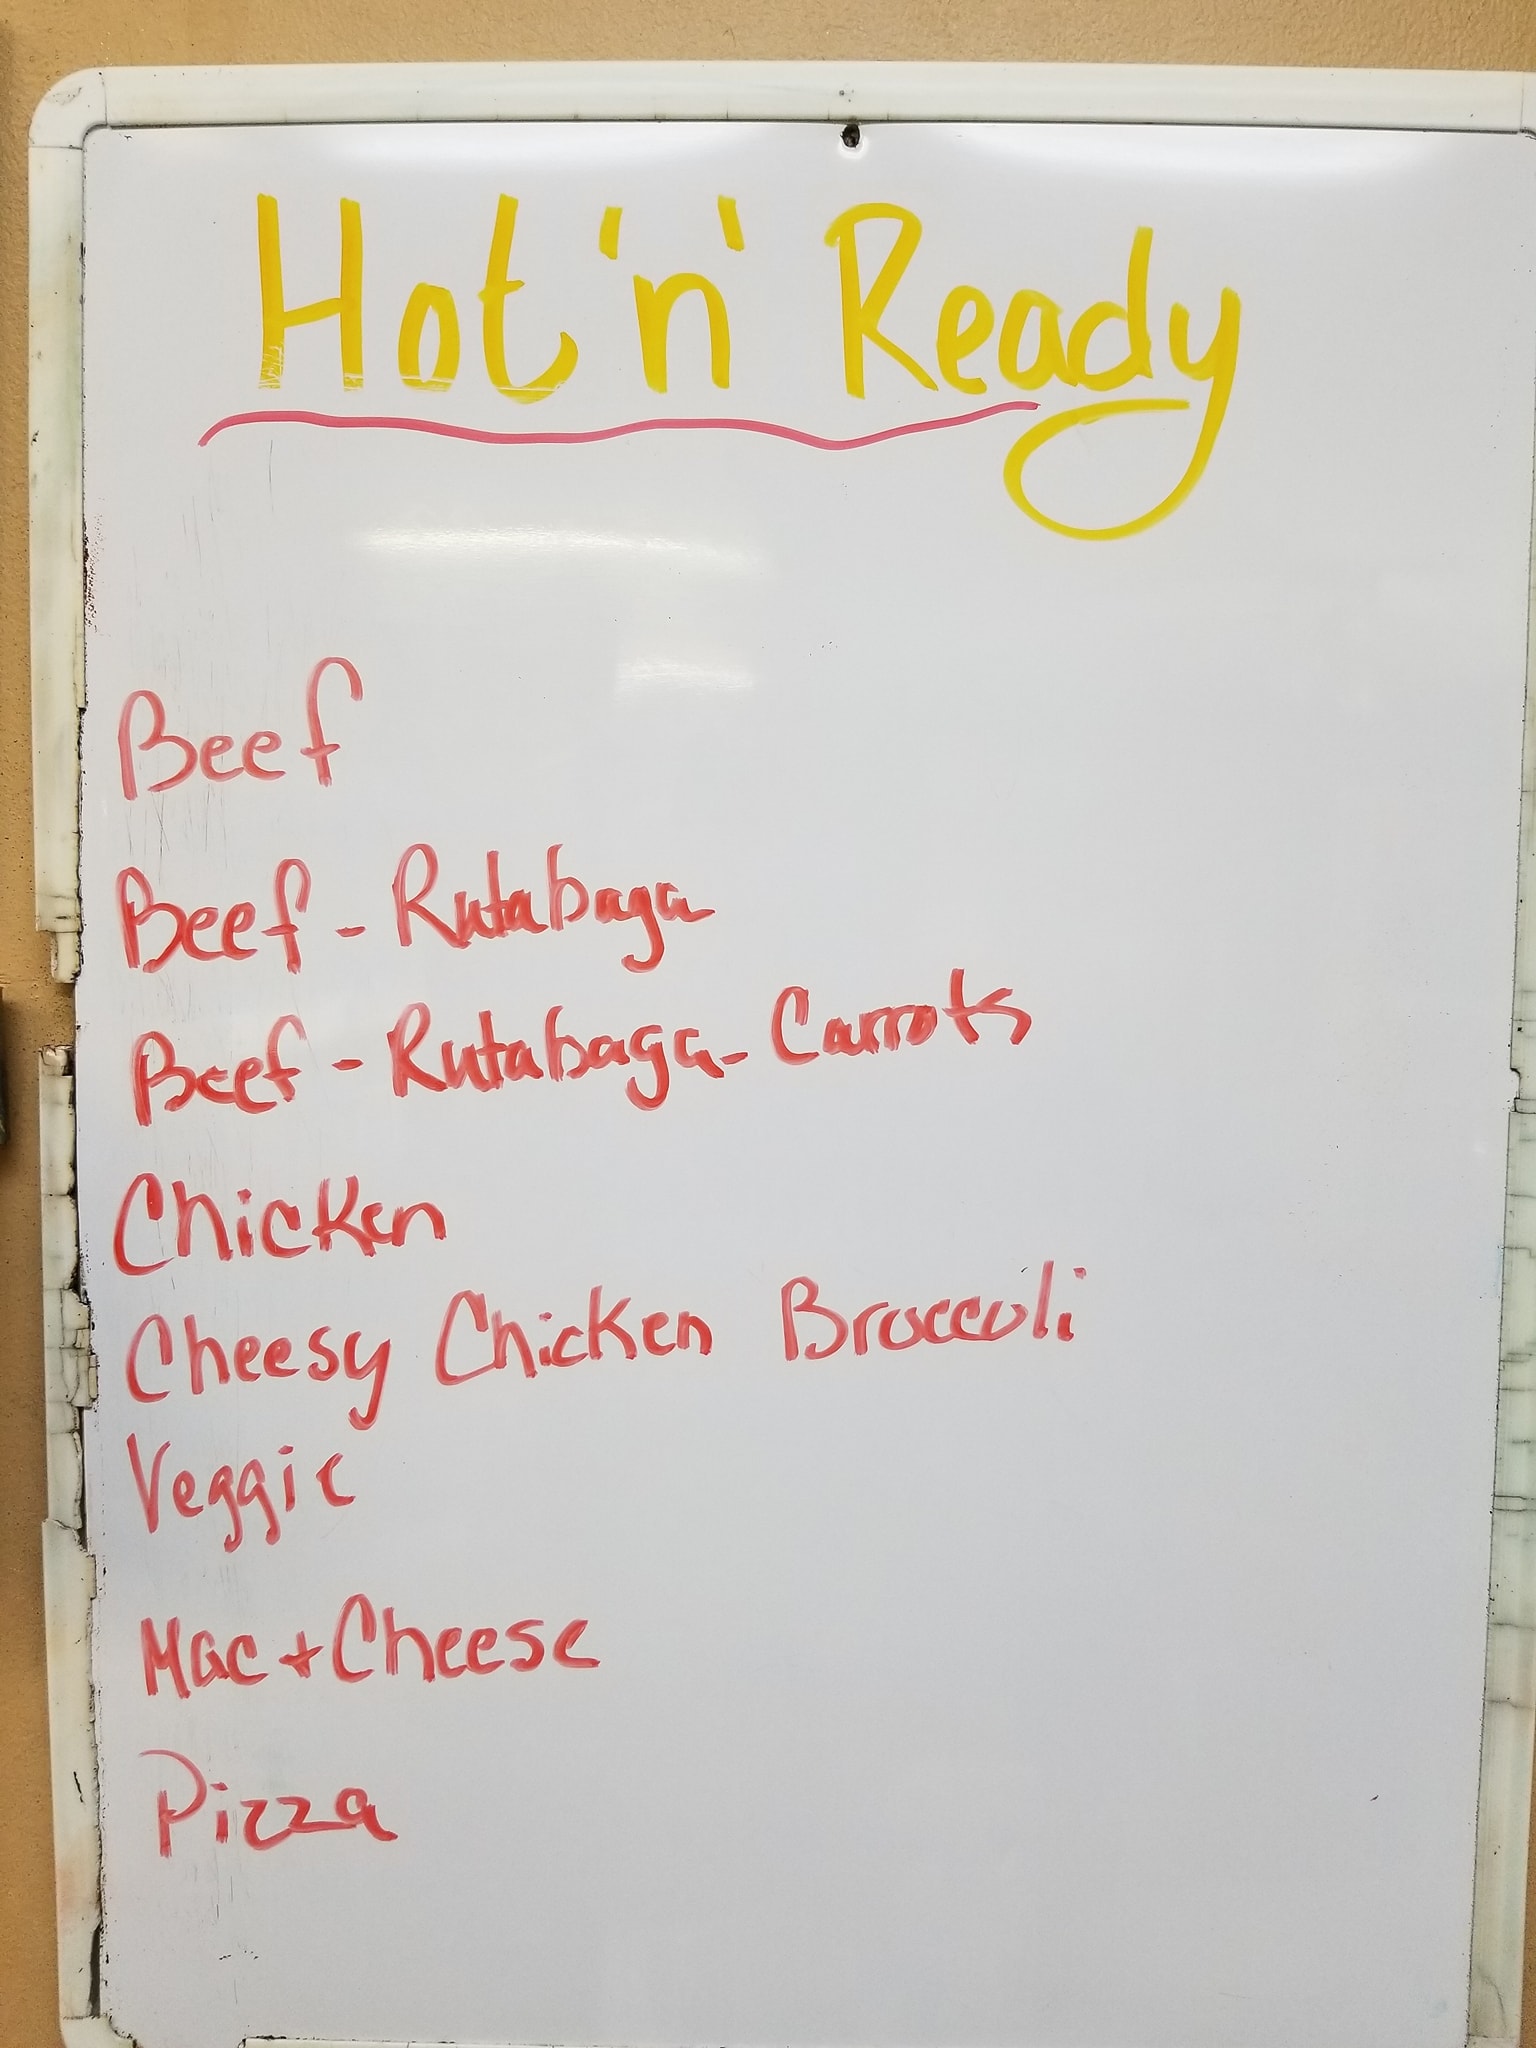 Hot 'n' Ready
Beef
Beef - Rutabaga
Beef - Rutabaga - Carrots
Chicken
Cheesy Chicken Broccoli
Veggie
Mac + Cheese
Pizza